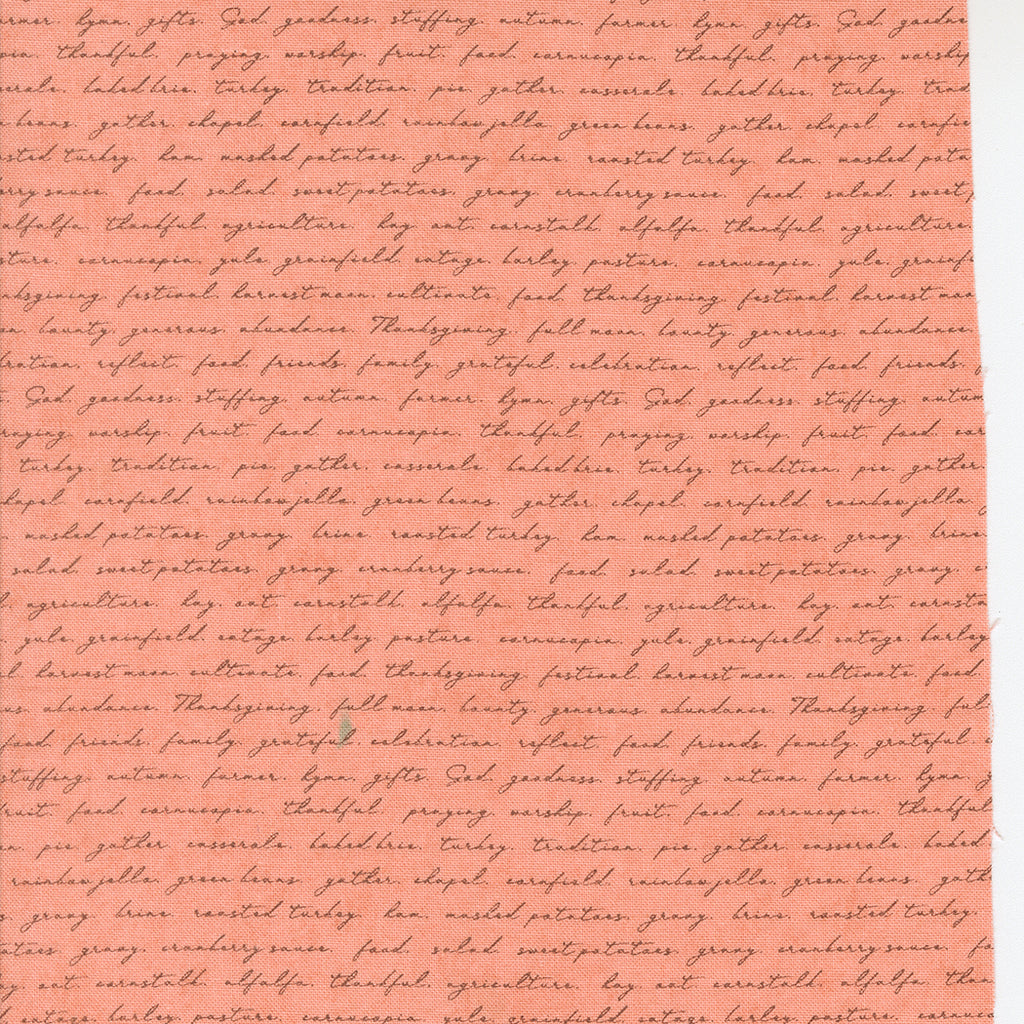 farmer. hymn. gifts. God. goodness. stuffing. autumn. farmer. hymn. gifts. God. goodne
thankful. praying. worship. fruit. food. cornucopia. thankful. praying. worship
casserole. baked brie. turkey. tradition. pie. gather. casserole. baked brie. turkey. trad
beans. gather. chapel. cornfield. rainbow jello. green beans. gather. chapel. cornfie
sted turkey. ham. mashed potatoes. gravy. brine. roasted turkey. ham. mashed pota
erry sauce. food. salad. sweet potatoes. gravy. cranberry sauce. food. salad. sweet
alfalfa. thankful. agriculture. hay. oat. cornstalk. alfalfa. thankful. agriculture.
sture. cornucopia. yule. grainfield. eatage. barley. pasture. cornucopia. yule. grainfi
nksgiving. festival. harvest moon. cultivate. food. thanksgiving. festival. harvest moo
on. bounty. generous. abundance. Thanksgiving. full moon. bounty. generous. abundance.
bration. reflect. food. friends. family. grateful. celebration. reflect. food. friends.
God. goodness. stuffing. autumn. farmer. hymn. gifts. God. goodness. stuffing. autum
raying. worship. fruit. food. cornucopia. thankful. praying. worship. fruit. food. cor
turkey. tradition. pie. gather. casserole. baked brie. turkey. tradition. pie. gather.
hapel. cornfield. rainbow jello. green beans. gather. chapel. cornfield. rainbow jello.
mashed potatoes. gravy. brine. roasted turkey. ham. mashed potatoes. gravy. brine.
salad. sweet potatoes. gravy. cranberry sauce. food. salad. sweet potatoes. gravy. c
l. agriculture. hay. oat. cornstalk. alfalfa. thankful. agriculture. hay. oat. cornsta
yule. grainfield. eatage. barley. pasture. cornucopia. yule. grainfield. eatage. barley
l. harvest moon. cultivate. food. thanksgiving. festival. harvest moon. cultivate. food.
us. abundance. Thanksgiving. full moon. bounty. generous. abundance. Thanksgiving. ful
food. friends. family. grateful. celebration. reflect. food. friends. family. grateful. c
stuffing. autumn. farmer. hymn. gifts. God. goodness. stuffing. autumn. farmer. hymn. g
ruit. food. cornucopia. thankful. praying. worship. fruit. food. cornucopia. thankful
n. pie. gather. casserole. baked brie. turkey. tradition. pie. gather. casserole. baked
rainbow jello. green beans. gather. chapel. cornfield. rainbow jello. green beans. gath
gravy. brine. roasted turkey. ham. mashed potatoes. gravy. brine. roasted turkey.
atoes. gravy. cranberry sauce. food. salad. sweet potatoes. gravy. cranberry sauce. fo
ay. oat. cornstalk. alfalfa. thankful. agriculture. hay. oat. cornstalk. alfalfa. than
eatage. barley. pasture. cornucopia. yule. grainfield. eatage. barley. pasture. cornuco